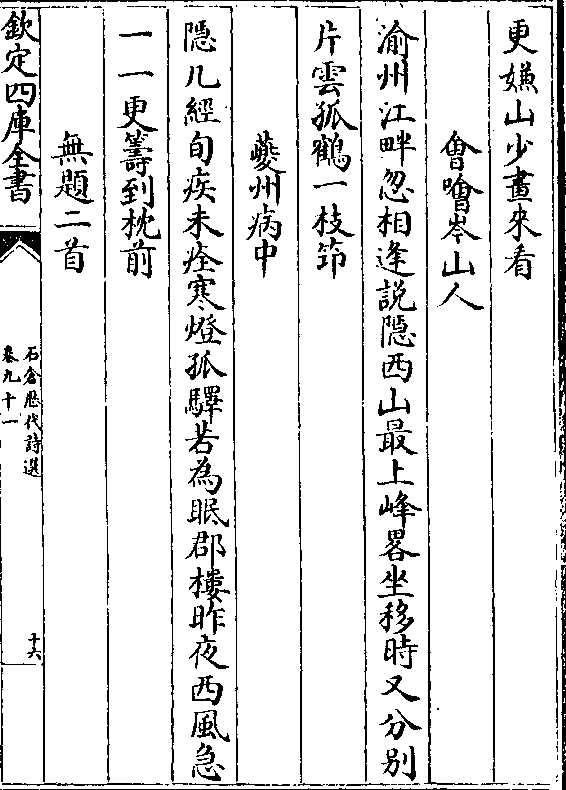 更嫌山少畫來看
會噲岑山人
渝州江畔忽相逢説隠西山最上峰畧坐移時又分别
片雲孤鶴一枝笻
夔州病中
隠几經旬疾未痊寒燈孤驛若為眠郡樓昨夜西風急
一一更籌到枕前
無題二首
欽定四庫全書
石倉歴代詩選
卷九十一
十六